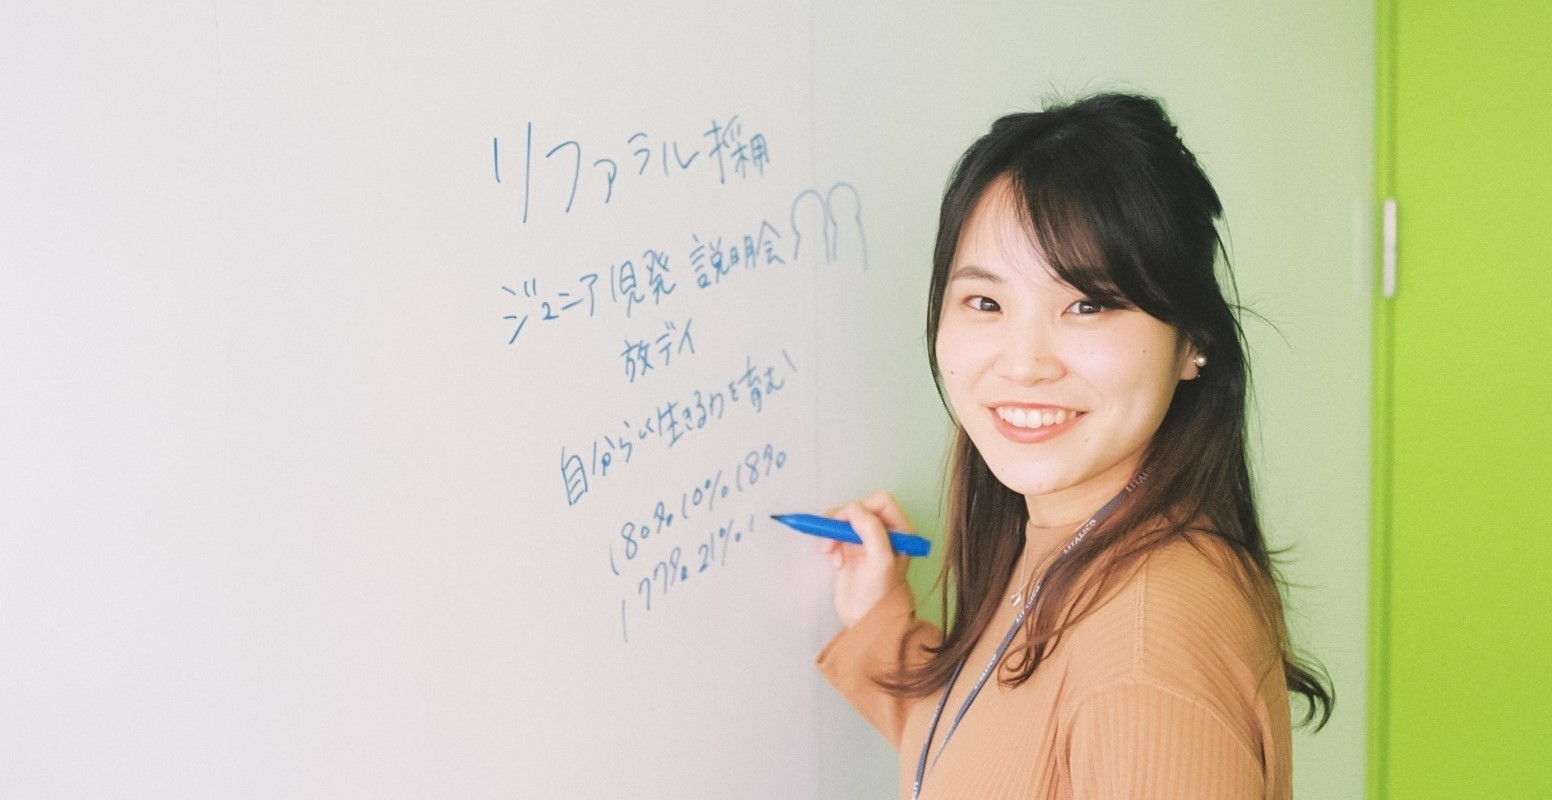 リファラル採用
ジュニア児発 説明会
放デイ
自分らしく生きる力を育む
180% 10% 18%
177% 21% 1
LITALICO
LITALICO
LITALICO
LITALICO